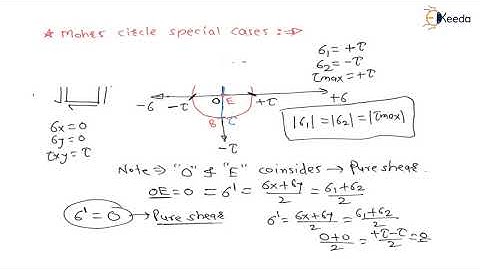 * Mohrs circle special cases :⇒
Ekeeda
6₁ = +τ
6₂ = -τ
τmax = +τ
-6 -τ O E +τ +6
B τ
-τ
|6₁| = |6₂| = |τmax|
6x = 0
6y = 0
τxy = τ
Note ⇒ "O" & "E" coinsides → Pure shear.
OE = 0 = 6' = 6x+6y/2 = 6₁+6₂/2
6' = 0 → Pure shear
6' = 6x+6y/2 = 6₁+6₂/2
0+0/2 = +τ-τ/2 = 0